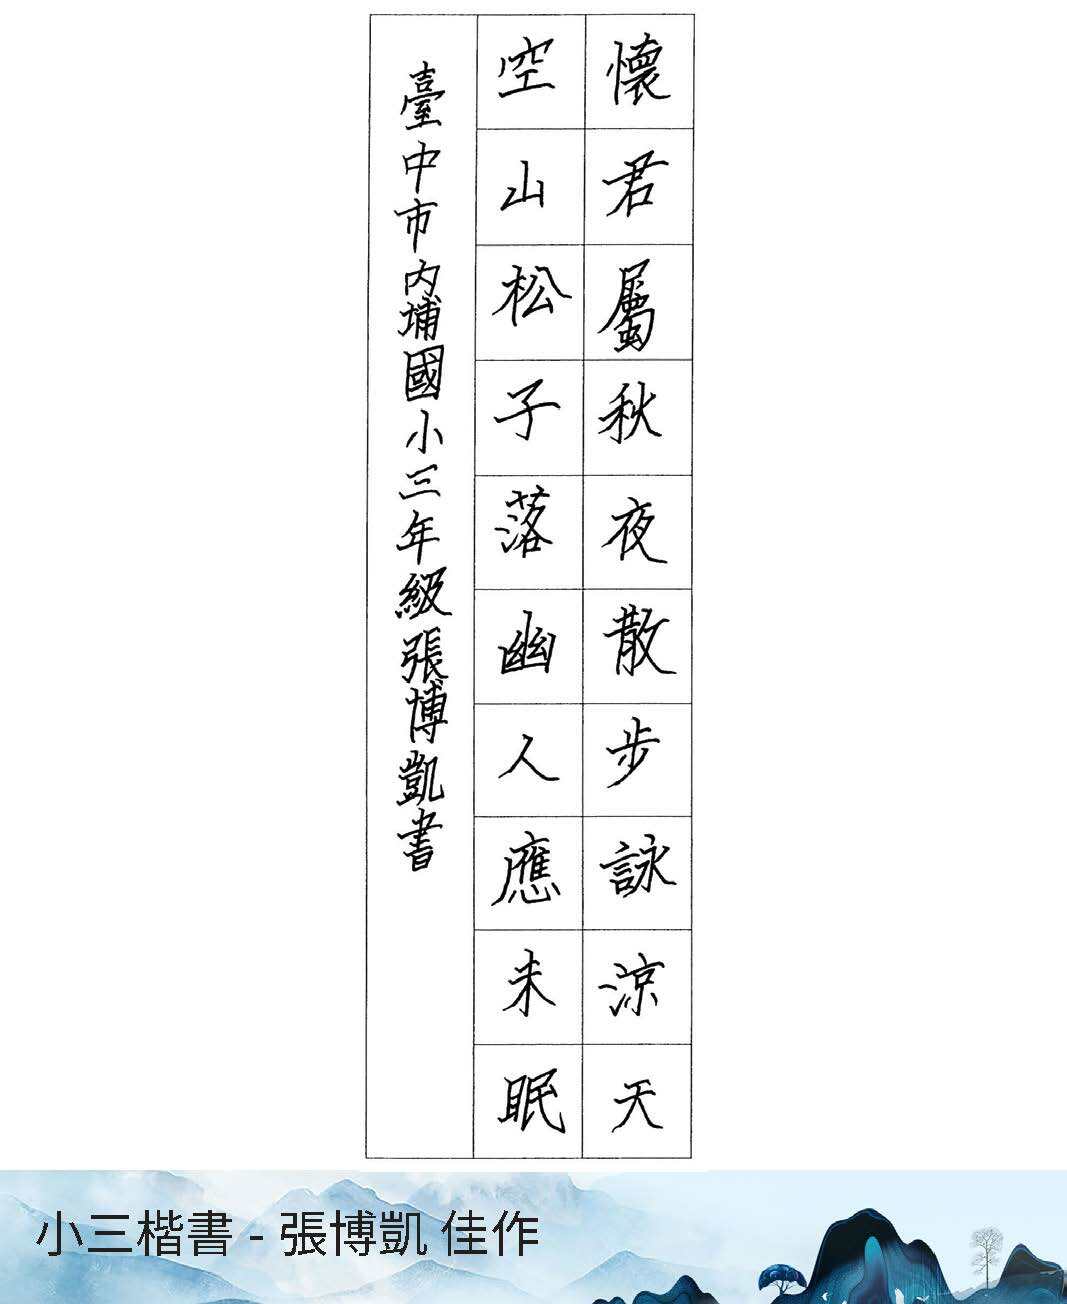 懷君屬秋夜散步詠涼天
空山松子落幽人應未眠
臺中市內埔國小三年級張博凱書
小三楷書 - 張博凱 佳作